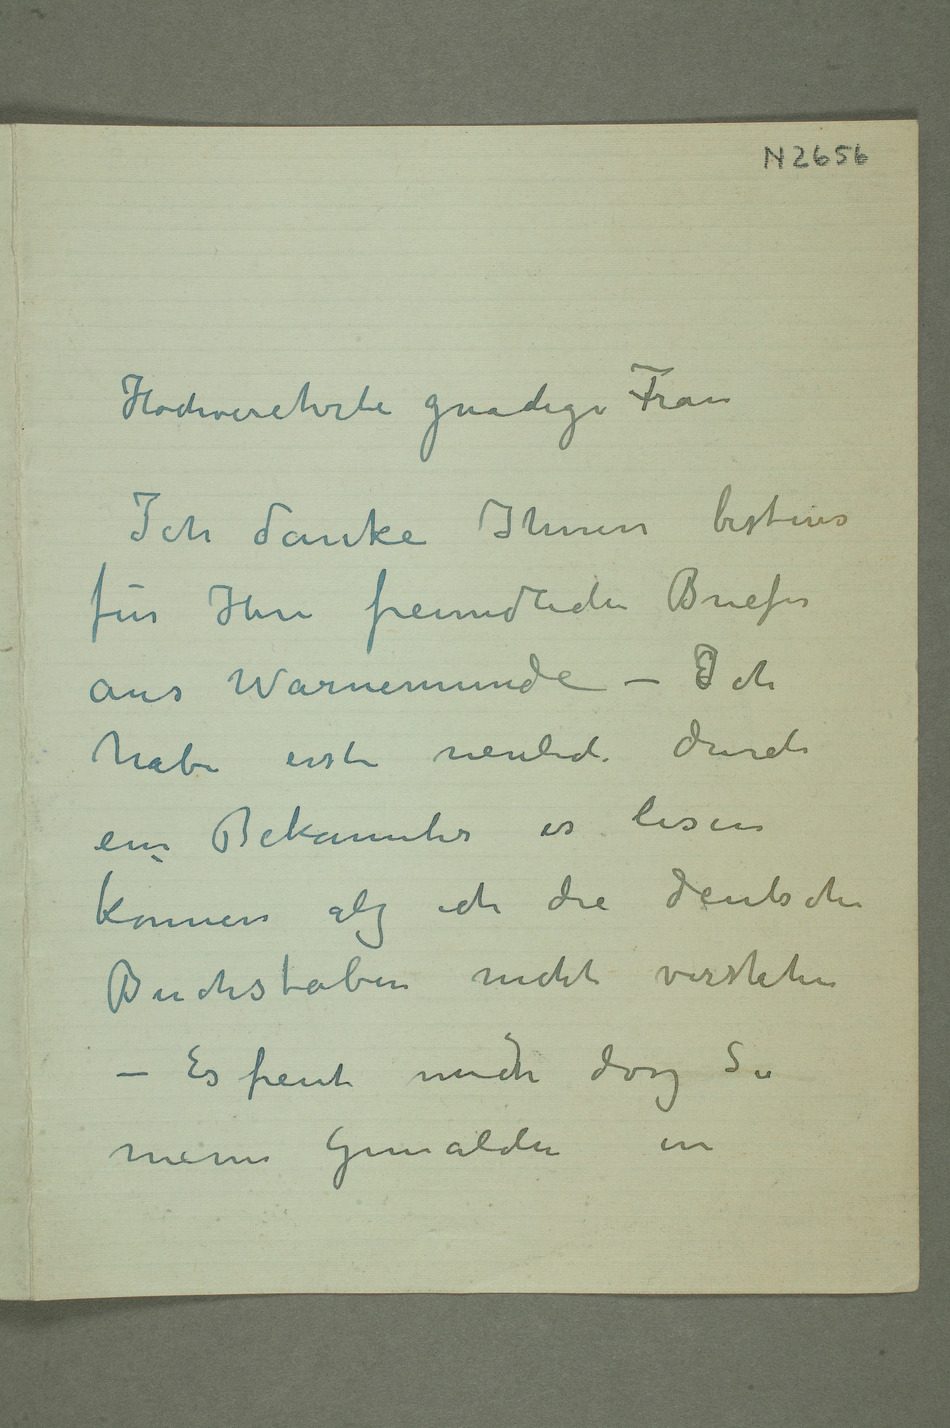 N 2656
Hochverehrte gnadige Frau
Ich danke Ihnen bestens
für Ihre freundliche Briefes
aus Warnemünde – Ich
habe erste neulich durch
ein Bekannter es lesen
konnen alz ich die deutsche
Buchstaben nicht verstehe
– Es freut mich dasz Sie
meine Gemälde in